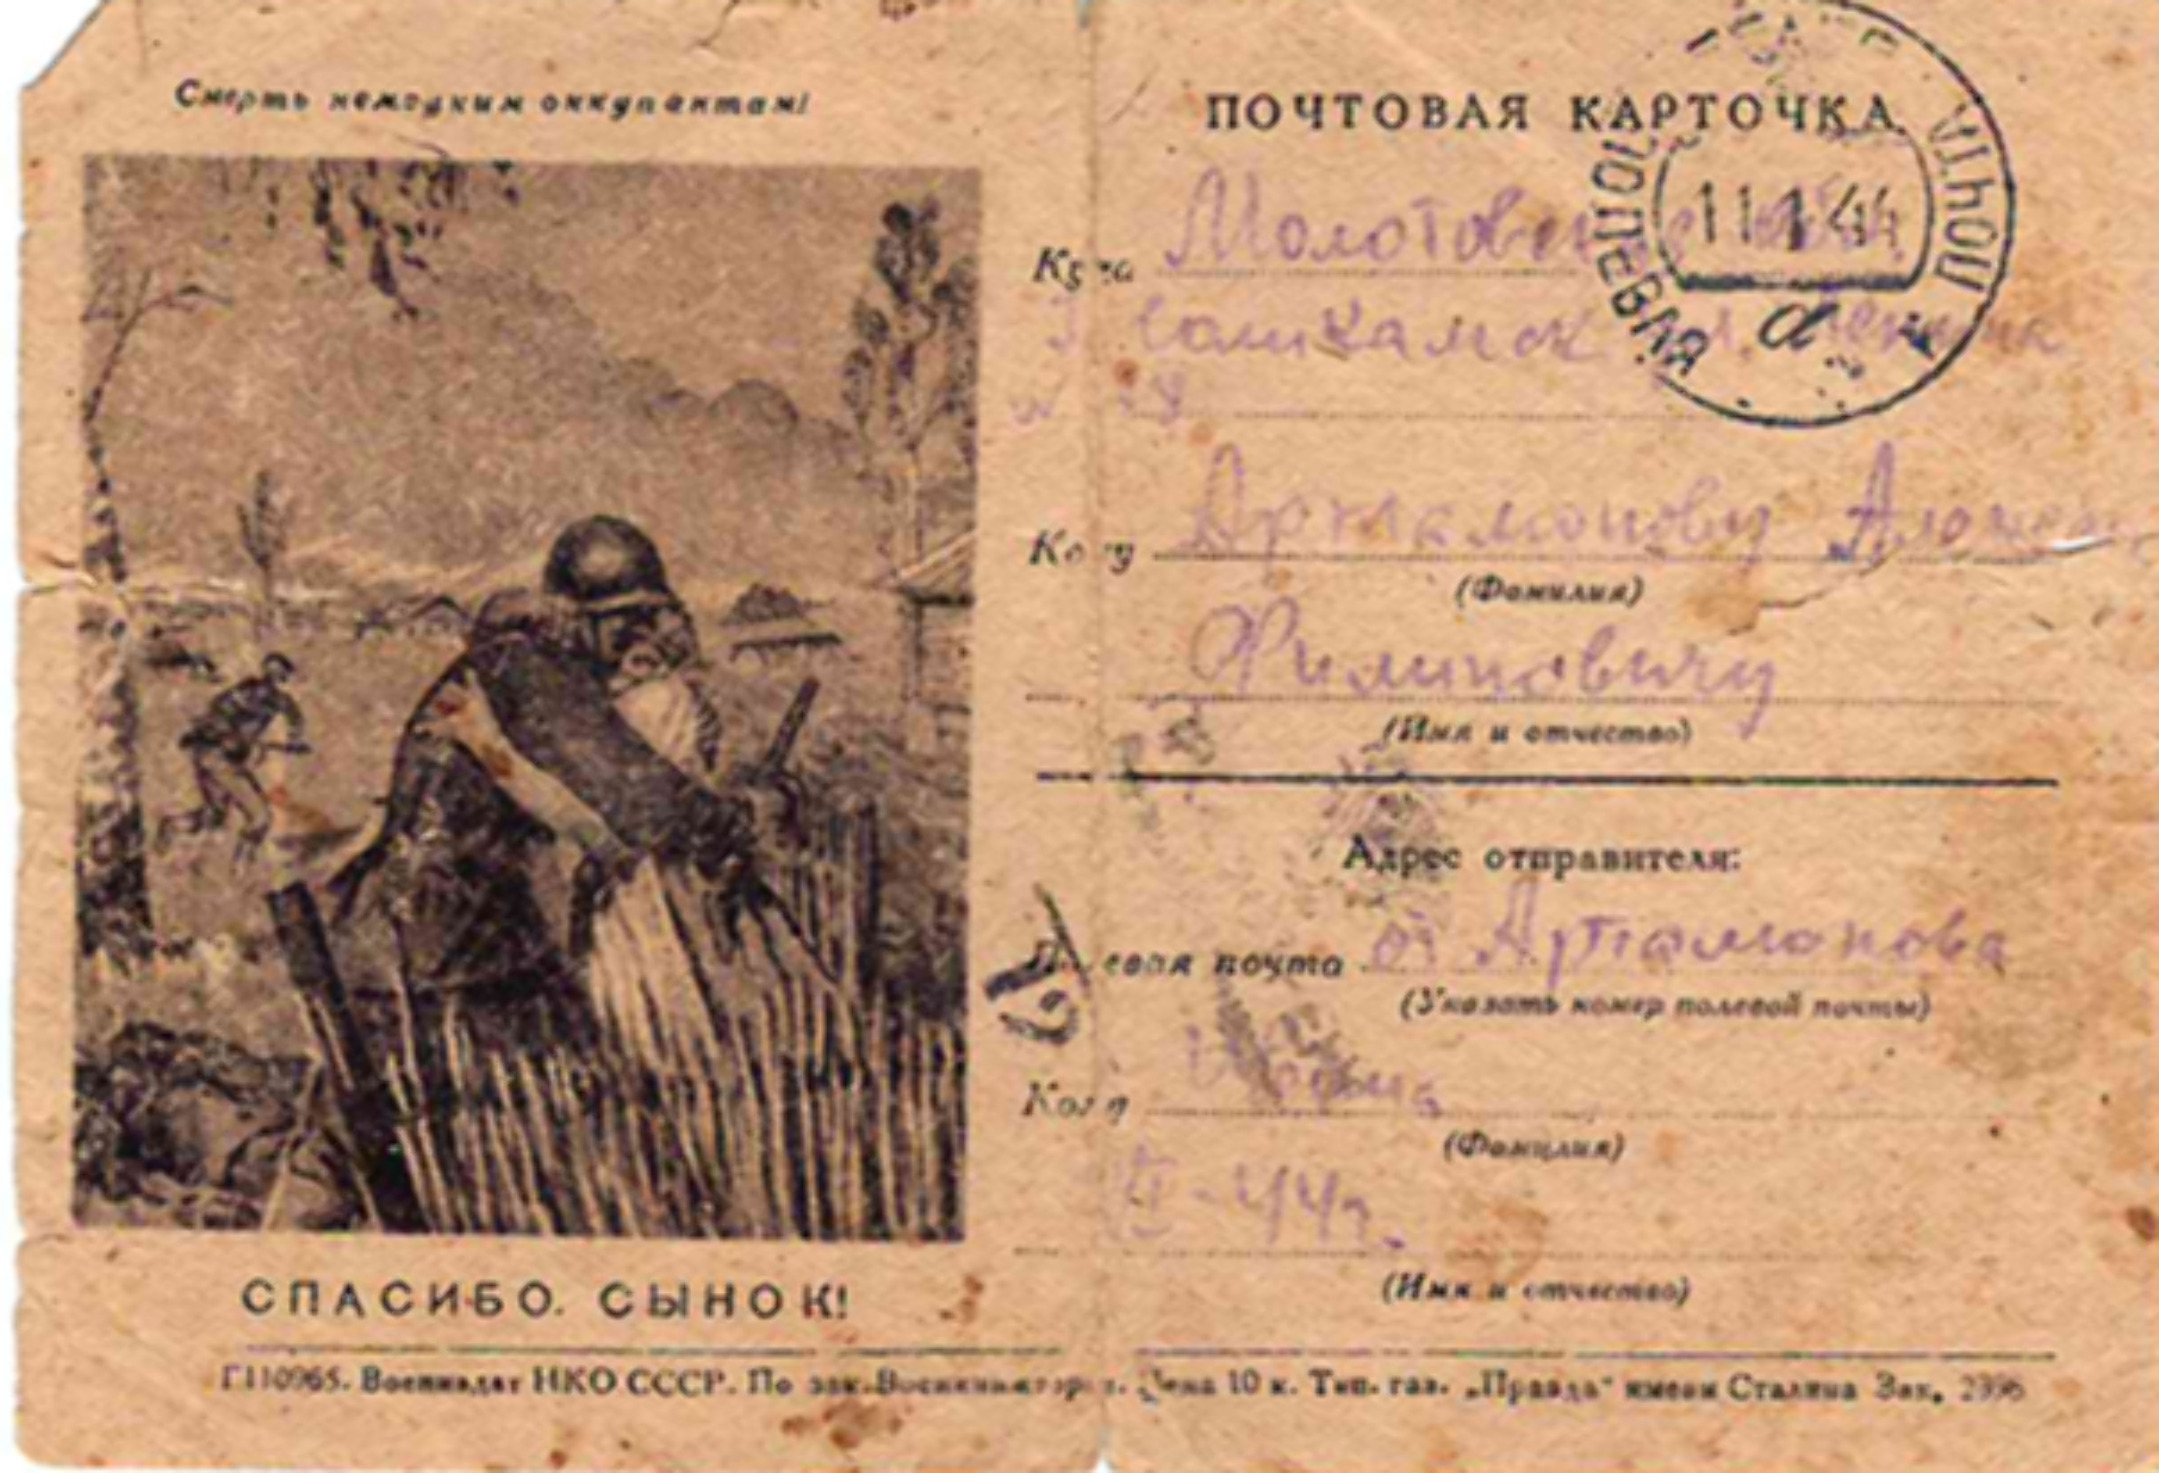 Смерть немецким оккупантам!
СПАСИБО, СЫНОК!
ПОЧТОВАЯ КАРТОЧКА
ПОЛЕВАЯ ПОЧТА
11 1 44
Куда Молотовская
Соликамск
Кому Артамонову
(Фамилия)
Филиповичу
(Имя и отчество)
Адрес отправителя:
Полевая почта от Артамонова
(Указать номер полевой почты)
Кому
(Фамилия)
-44г.
(Имя и отчество)
Г110965. Воениздат НКО СССР. По зак. Цена 10 к. Тип. газ. „Правда“ имени Сталина Зак.